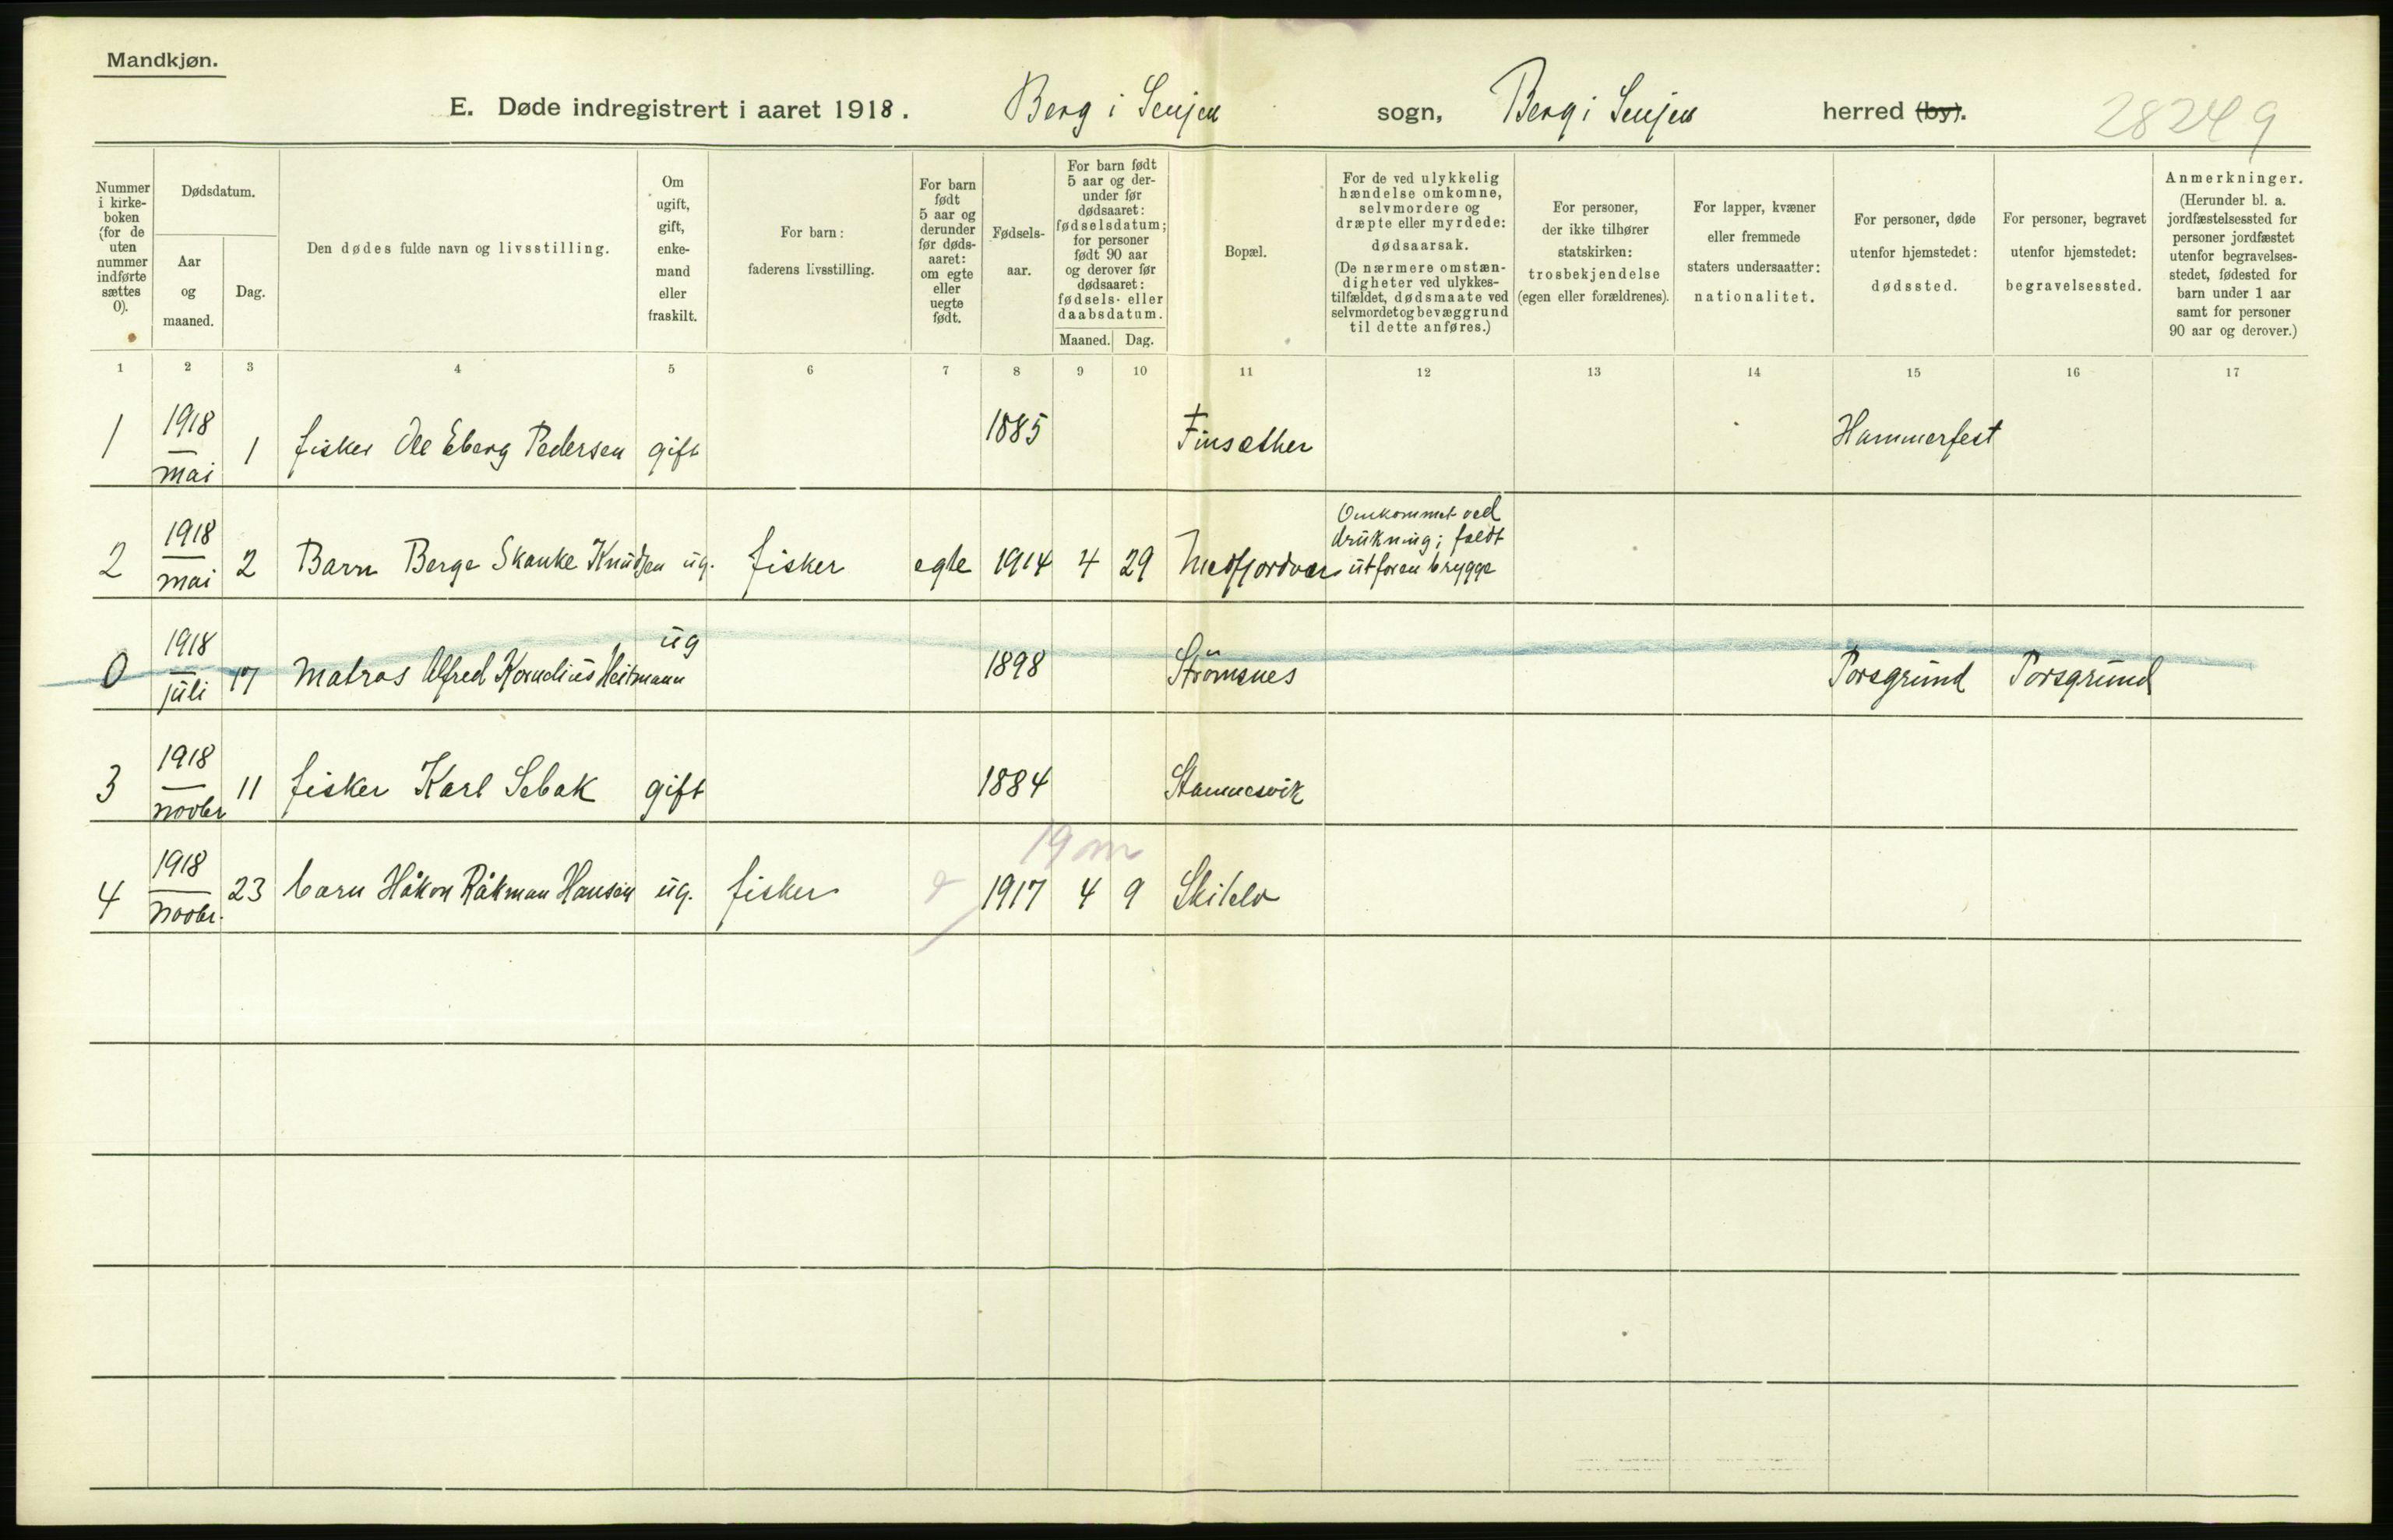 Mandkjøn.
E. Døde indregistrert i aaret 1918. Berg i Senjen sogn, Berg i Senjen herred (by).
28249
Nummer i kirkeboken (for de uten nummer indførte sættes 0).
Dødsdatum.
Aar og maaned.
Dag.
Den dødes fulde navn og livsstilling.
Om ugift, gift, enkemand eller fraskilt.
For barn: faderens livsstilling.
For barn født 5 aar og derunder før dødsaaret: om egte eller uegte født.
Fødselsaar.
For barn født 5 aar og derunder før dødsaaret: fødselsdatum; for personer født 90 aar og derover før dødsaaret: fødsels- eller daabsdatum.
Maaned. Dag.
Bopæl.
For de ved ulykkelig hændelse omkomne, selvmordere og dræpte eller myrdede: dødsaarsak. (De nærmere omstændigheter ved ulykkestilfældet, dødsmaate ved selvmordet og bevæggrund til dette anføres.)
For personer, der ikke tilhører statskirken: trosbekjendelse (egen eller forældrenes).
For lapper, kvæner eller fremmede staters undersaatter: nationalitet.
For personer, døde utenfor hjemstedet: dødssted.
For personer, begravet utenfor hjemstedet: begravelsessted.
Anmerkninger. (Herunder bl. a. jordfæstelsessted for personer jordfæstet utenfor begravelsesstedet, fødested for barn under 1 aar samt for personer 90 aar og derover.)
1 2 3 4 5 6 7 8 9 10 11 12 13 14 15 16 17
1 1918 mai 1 fisker Ole Eberg Pedersen gift 1885 Finsæther Hammerfest
2 1918 mai 2 Barn Berge Skanke Knudsen ug. fisker egte 1914 4 29 Medfjordvær Omkommet ved drukning; faldt ut for en brygge
0 1918 juli 17 Matros Alfred Kornelius Heitmann ug 1898 Strömsnes Porsgrund Porsgrund
3 1918 novbr 11 fisker Karl Sebak gift 1884 Stamnesvik
19 m
4 1918 novbr. 23 barn Håkon Råkman Hansen ug. fisker 1917 4 9 Skitelv